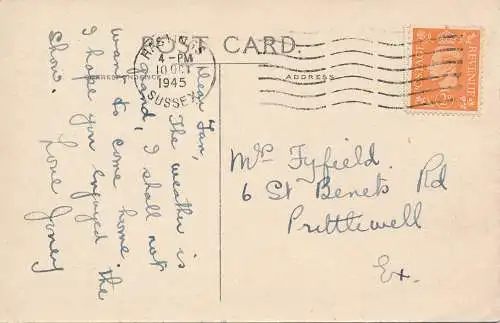 POST CARD.
CORRESPONDENCE
ADDRESS
SUSSEX
4 - PM
10 OCT
1945
POSTAGE
REVENUE
Dear Fan,
The weather is
grand, I shall not
want to come home.
I hope you enjoyed the
show.
Love Joney
Mrs Fyfield.
6 St Benets Rd
Prittlewell
Ex.